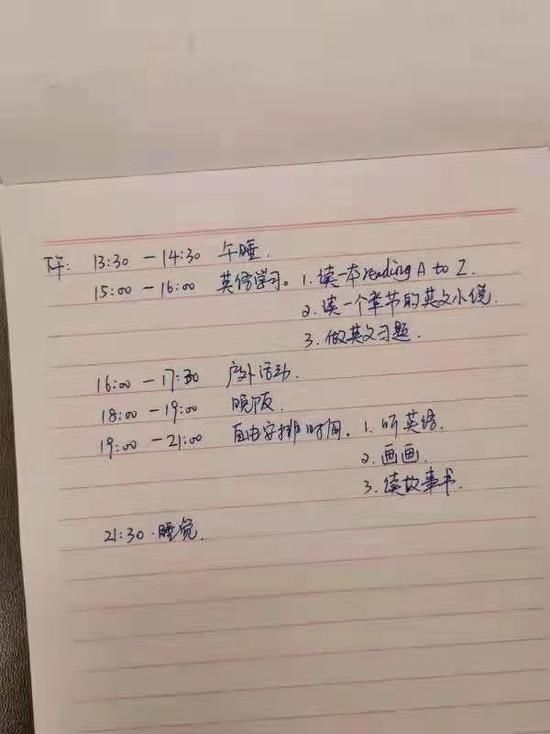 下午: 13:30 — 14:30 午睡.
15:00 — 16:00 英语学习。1. 读一本reading A to Z.
2. 读一个章节的英文小说.
3. 做英文习题.
16:00 — 17:30 户外活动.
18:00 — 19:00 晚饭.
19:00 — 21:00 自由安排时间。1. 听英语.
2. 画画.
3. 读故事书.
21:30 · 睡觉.